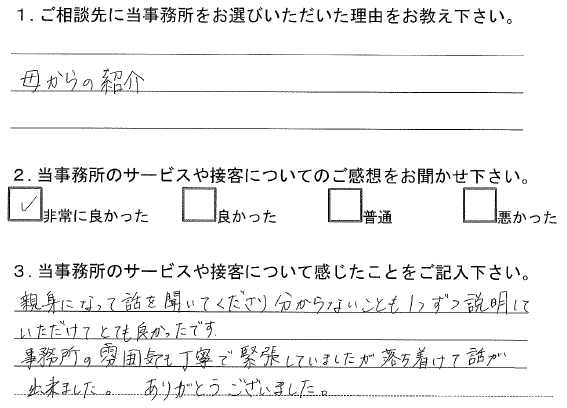 １．ご相談先に当事務所をお選びいただいた理由をお教え下さい。
母からの紹介
２．当事務所のサービスや接客についてのご感想をお聞かせ下さい。
✓ 非常に良かった 良かった 普通 悪かった
３．当事務所のサービスや接客について感じたことをご記入下さい。
親身になって話を聞いてくださり分からないことも1つずつ説明して
いただけてとても良かったです。
事務所の雰囲気も丁寧で緊張していましたが落ち着けて話が
出来ました。 ありがとうございました。